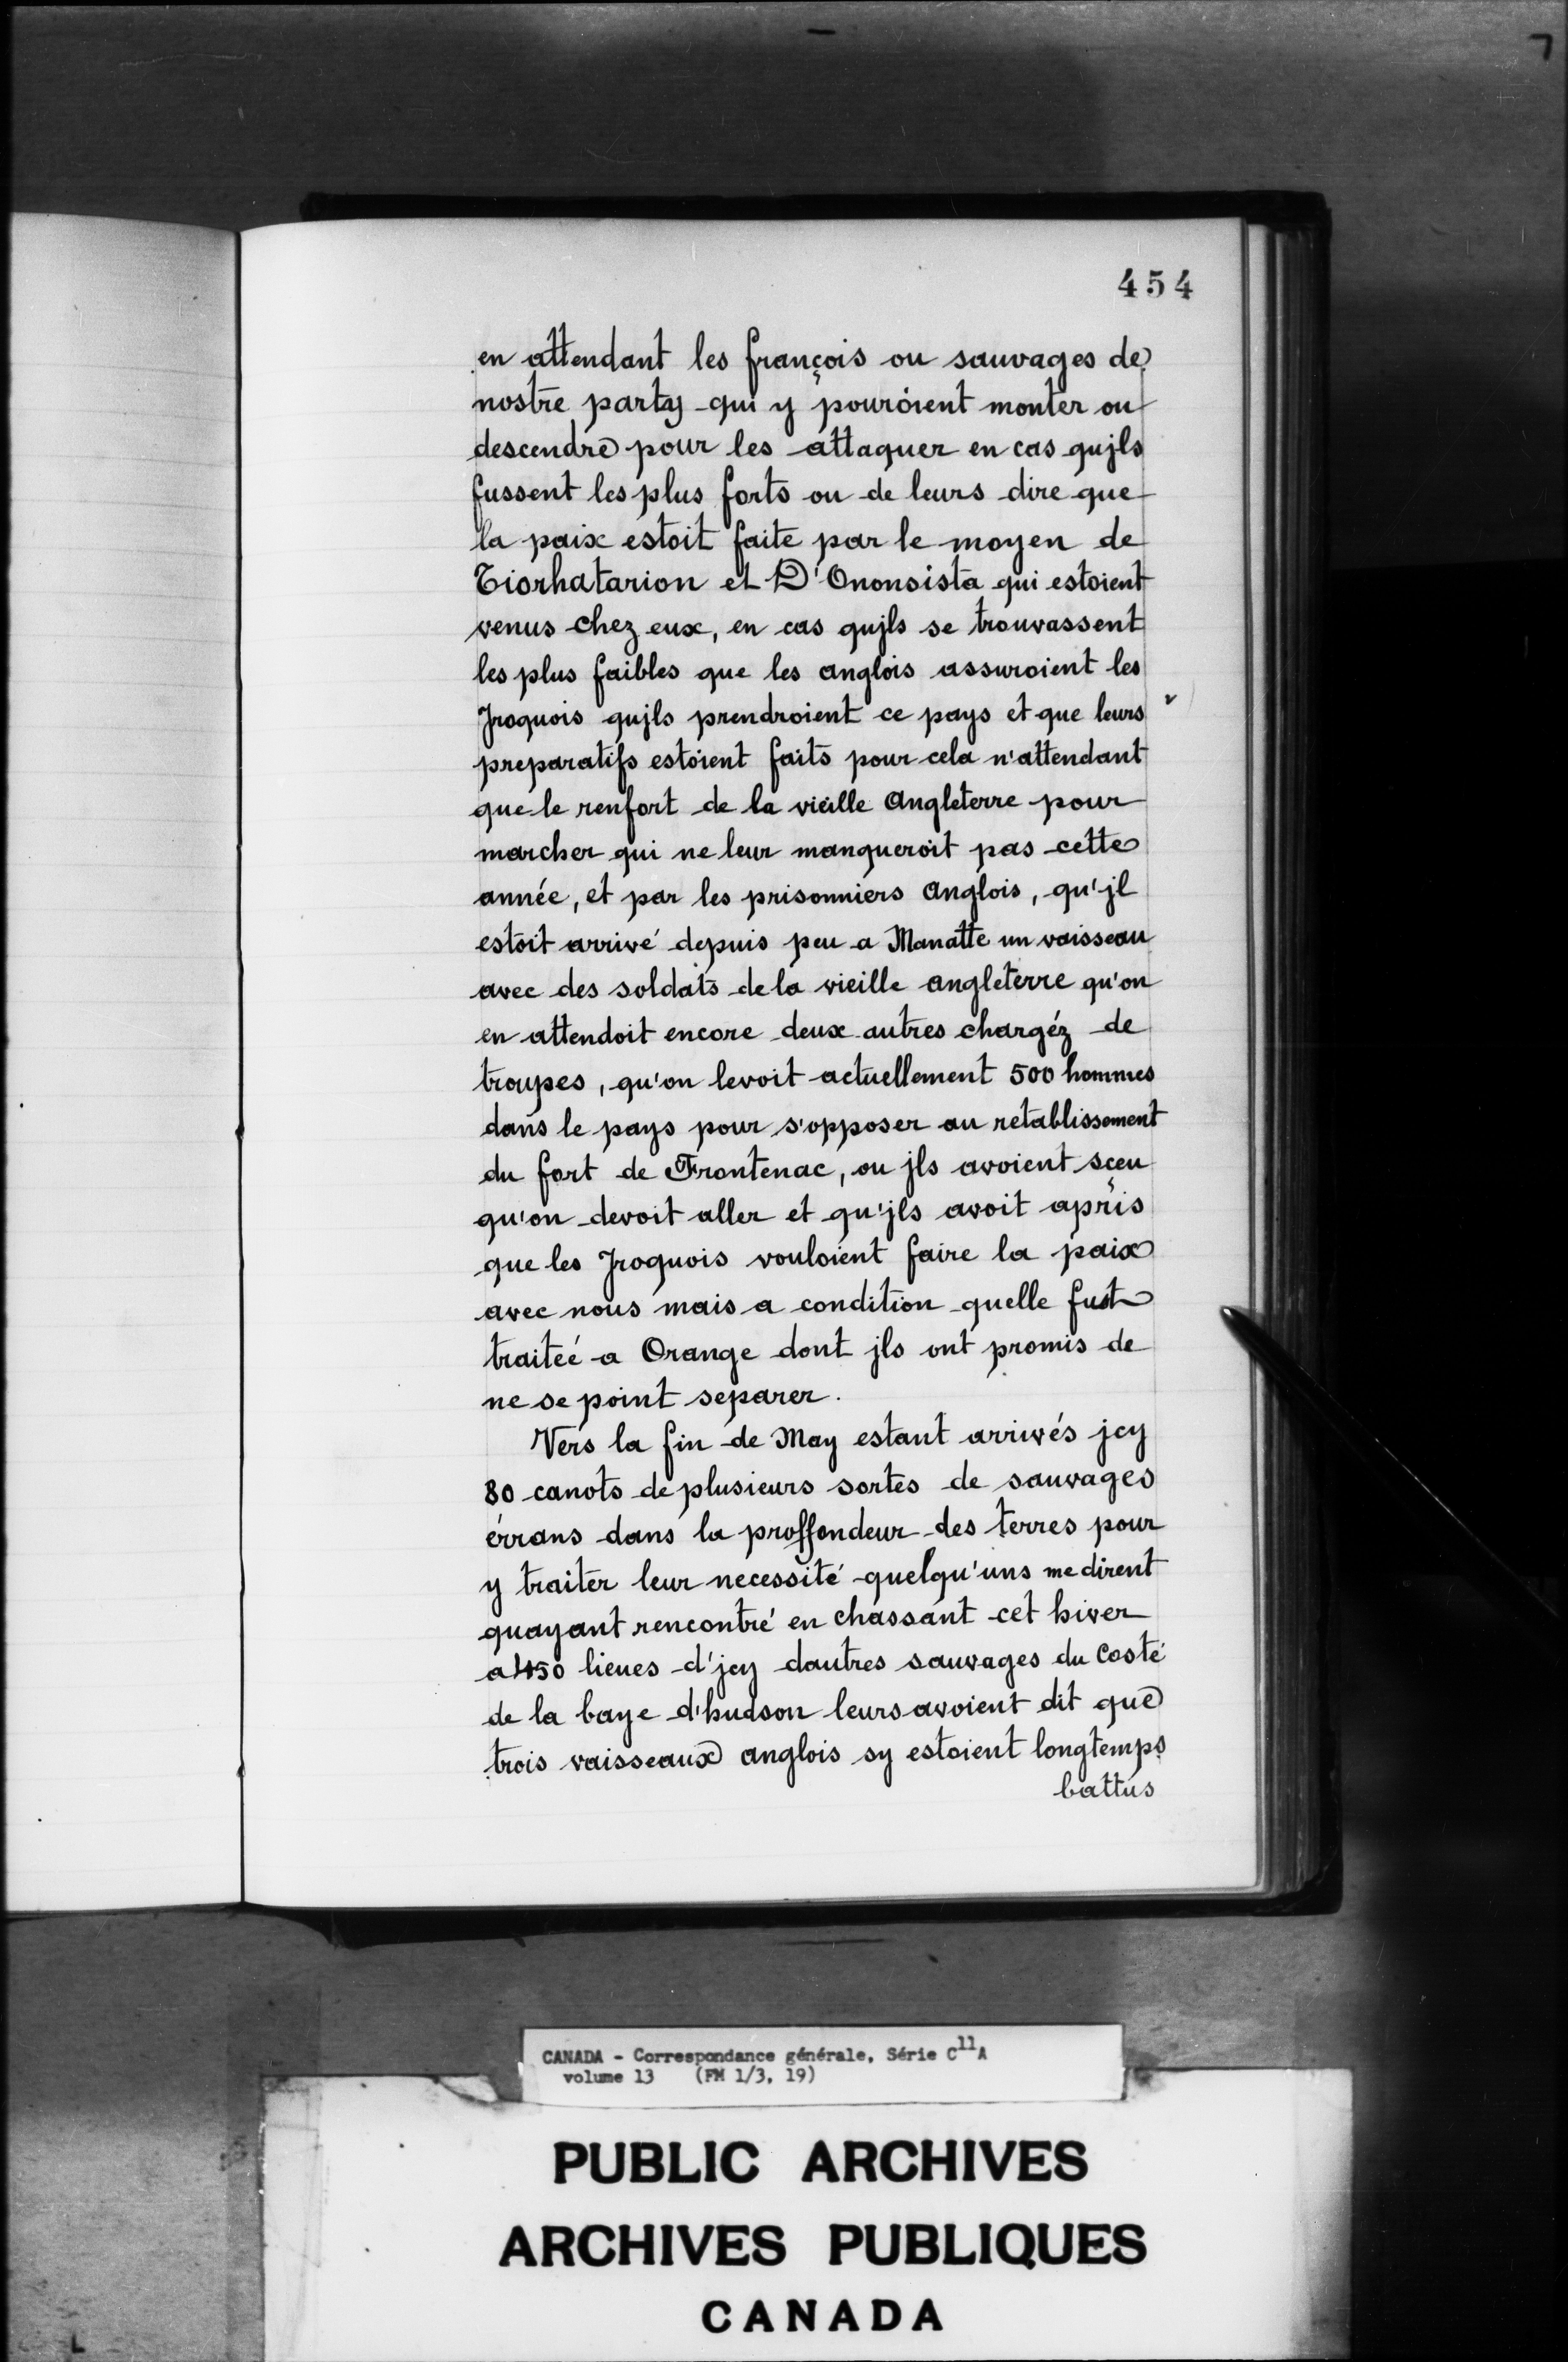 454
en attendant les françois ou sauvages de
nostre party qui y pouroient monter ou
descendre pour les attaquer en cas qujls
fussent les plus forts ou de leurs dire que
la paix estoit faite par le moyen de
Tiorhatarion et D'Ononsista qui estoient
venus chez eux, en cas qujls se trouvassent
les plus faibles que les anglois assuroient les
Jroquois qujls prendroient ce pays et que leurs
preparatifs estoient faits pour cela n'attendant
que le renfort de la vieille Angleterre pour
marcher qui ne leur manqueroit pas cette
année, et par les prisonniers Anglois, qu'jl
estoit arrivé depuis peu a Manatte un vaisseau
avec des soldats de la vieille angleterre qu'on
en attendoit encore deux autres chargéz de
troupes, qu'on levoit actuellement 500 hommes
dans le pays pour s'opposer au retablissement
du fort de Frontenac, ou jls avoient sçeu
qu'on devoit aller et qu'jls avoit apris
que les Jroquois vouloient faire la paix
avec nous mais a condition quelle fust
traiteé a Orange dont jls ont promis de
ne se point separer.
Vers la fin de May estant arrivés jcy
80 canots de plusieurs sortes de sauvages
errans dans la proffondeur des terres pour
y traiter leur necessité quelqu'uns me dirent
quayant rencontré en chassant cet hiver
a 450 lieues d'jcy dautres sauvages du Costé
de la baye d'hudson leurs avoient dit que
trois vaisseaux anglois sy estoient longtemps
battus
CANADA - Correspondance générale, Série C11A
volume 13 (FM 1/3, 19)
PUBLIC ARCHIVES
ARCHIVES PUBLIQUES
CANADA